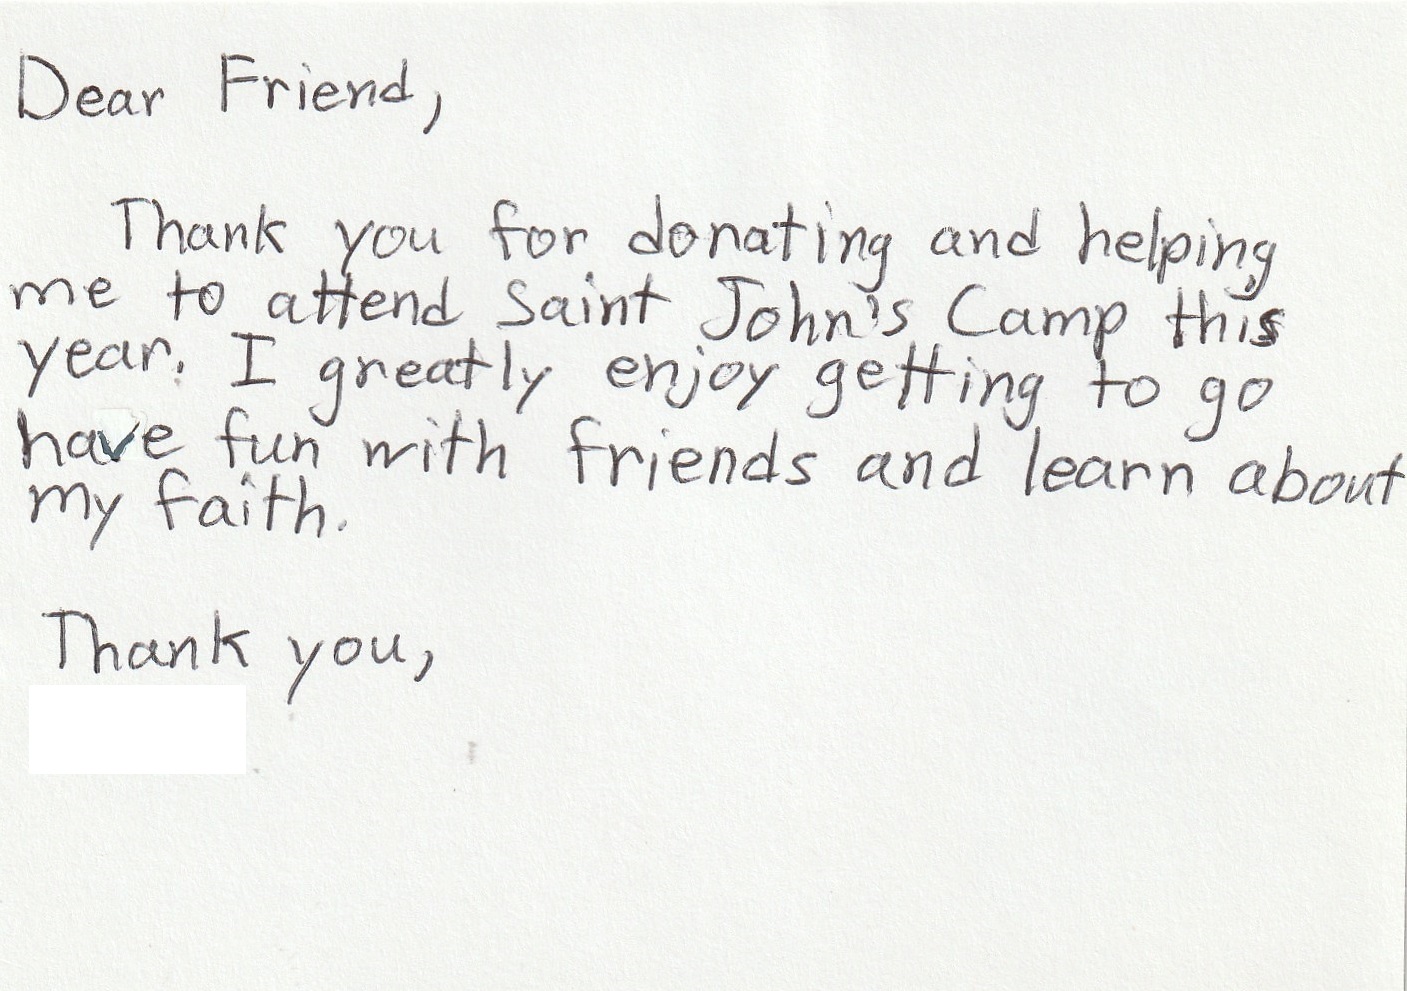 Dear Friend,
Thank you for donating and helping
me to attend Saint John's Camp this
year. I greatly enjoy getting to go
have fun with friends and learn about
my faith.
Thank you,